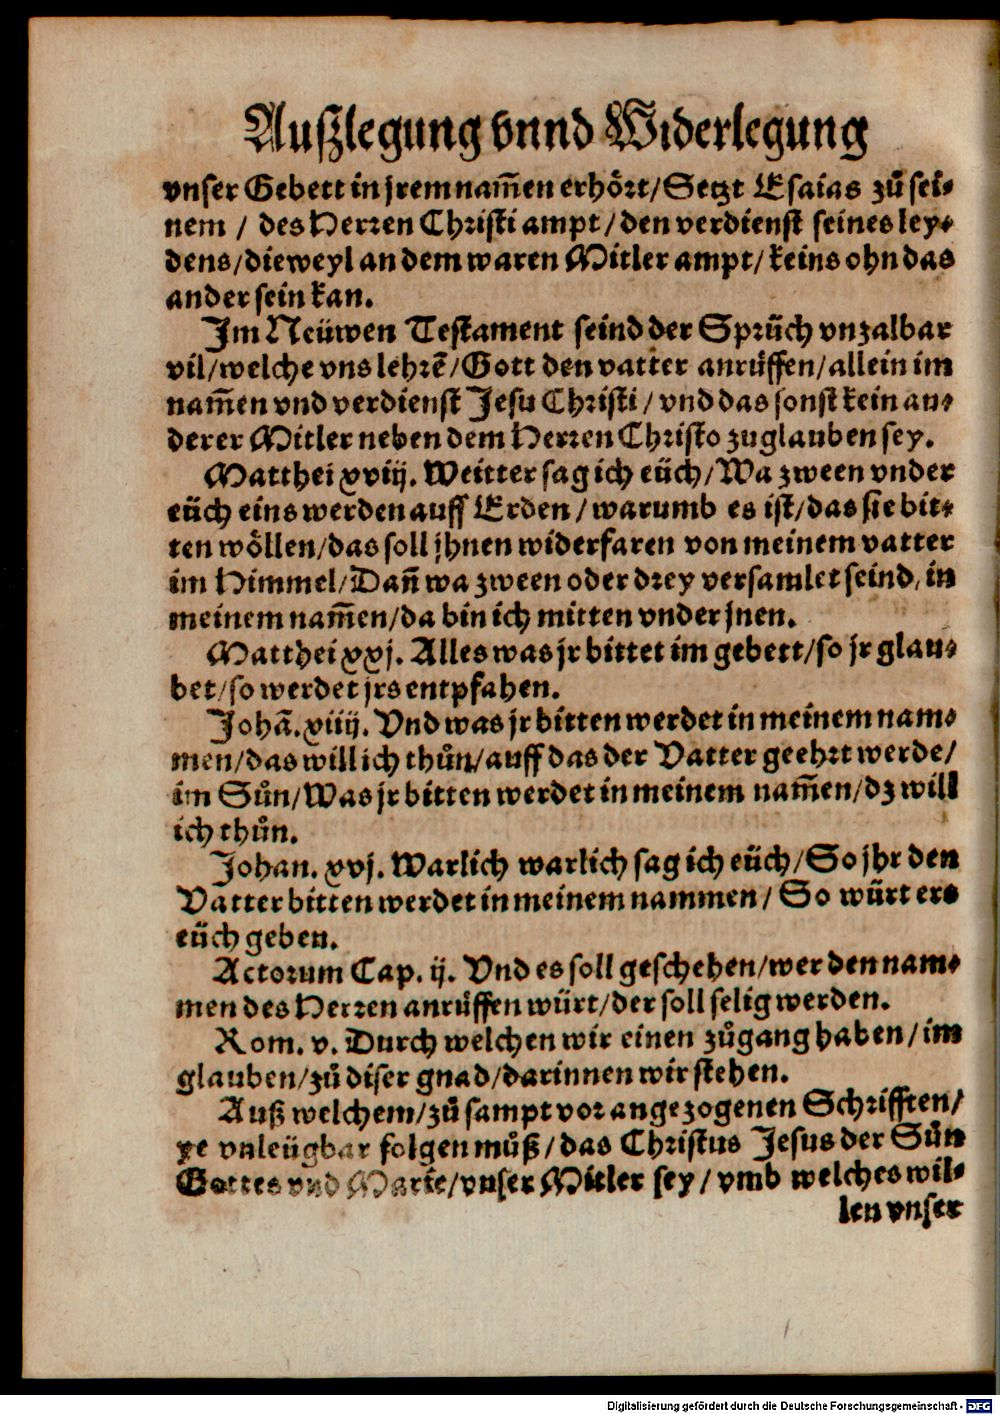 Außlegung vnnd Widerlegung
vnser Gebett in jrem nam̃en erhört/Setzt Esaias zů sei⸗
nem / des Herren Christi ampt/den verdienst seines ley⸗
dens/dieweyl an dem waren Mitler ampt/keins ohn das
ander sein kan.
Im Neüwen Testament seind der Sprüch vnzalbar
vil/welche vns lehrẽ/Gott den vatter anrůffen/allein im
nam̃en vnd verdienst Jesu Christi/vnd das sonst kein an⸗
derer Mitler neben dem Herren Christo zuglauben sey.
Matthei xviij. Weitter sag ich eüch/Wa zween vnder
eüch eins werden auff Erden/warumb es ist/das sie bit⸗
ten wöllen/das soll jhnen widerfaren von meinem vatter
im Himmel/Dañ wa zween oder drey versamlet seind/in
meinem nam̃en/da bin ich mitten vnder jnen.
Matthei xxj. Alles was jr bittet im gebett/so jr glau⸗
bet/so werdet jrs entpfahen.
Johã. xiiij. Vnd was jr bitten werdet in meinem nam⸗
men/das will ich thůn/auff das der Vatter geehrt werde/
im Sůn/Was jr bitten werdet in meinem nam̃en/dz will
ich thůn.
Johan. xvj. Warlich warlich sag ich eüch/So jhr den
Vatter bitten werdet in meinem nammen/So würt ers
eüch geben.
Actorum Cap. ij. Vnd es soll geschehen/wer den nam⸗
men des Herren anrůffen würt/der soll selig werden.
Rom. v. Durch welchen wir einen zůgang haben/im
glauben/zů diser gnad/darinnen wir stehen.
Auß welchem/zů sampt vor angezogenen Schrifften/
ye vnleügbar folgen můß/das Christus Jesus der Sůn
Gottes vnd Marie/vnser Mitler sey/vmb welches wil⸗
len vnser
Digitalisierung gefördert durch die Deutsche Forschungsgemeinschaft - DFG